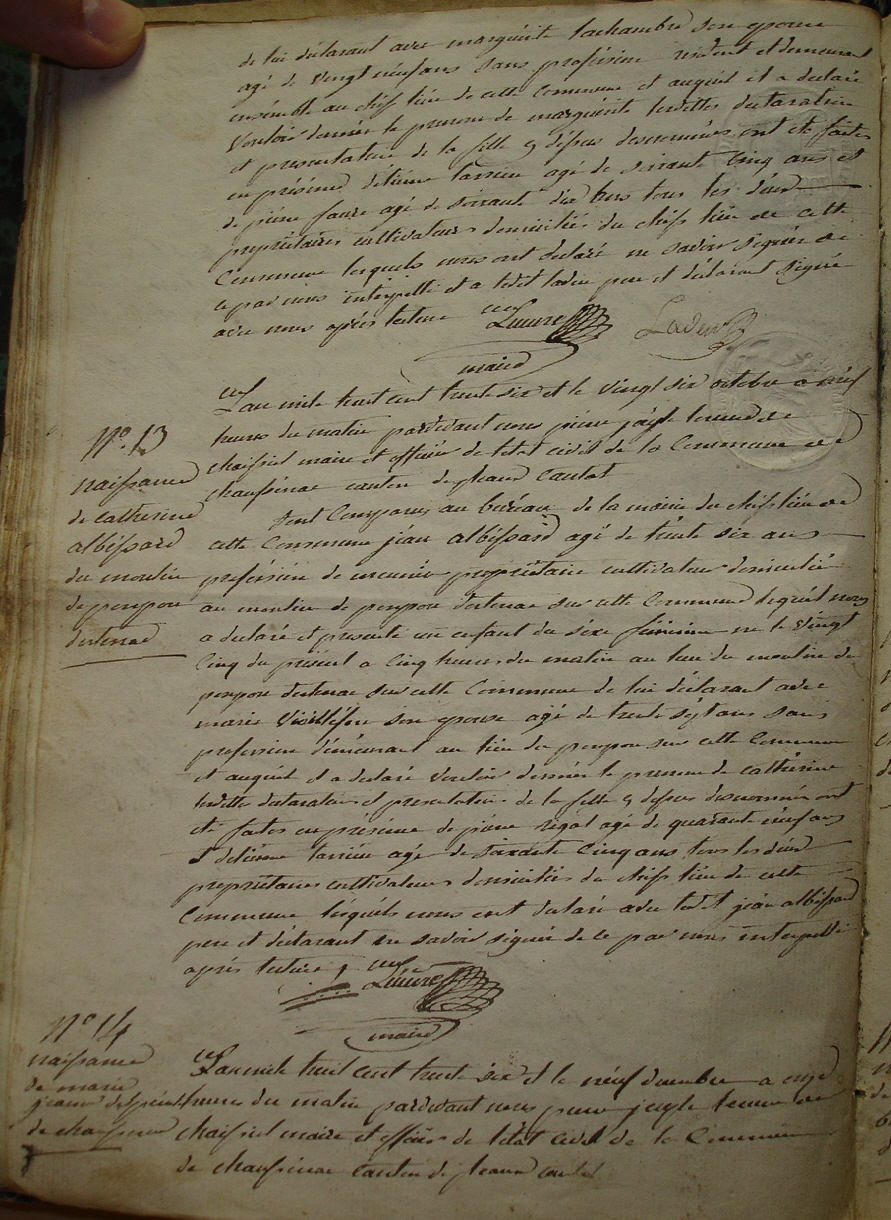 de lui déclarant avec marguerite lachambre son epouse
agé de vingt neuf ans sans profession resident et demeurant
ensemble au chef lieu de cette Commune et auquel il a declaré
Vouloir donner le prenom de marguerite lesdittes declaration
et presentation de la fille cy dessus denommées ont été faites
en présence détiene larriu agé de soixante cinq ans et
de piérre faure agé de soixante dix tous les deux
propriétaires cultivateurs domiciliés du chef lieu de cette
Commune lesquels nous ont declaré ne savoir signér de
ce par nous interpellé et a ledit pere et déclarant signé
avec nous aprés lecture
maire
L'an mile huit cent trente six et le vingt six octobre a neuf
heures du matin pardevant nous piérre
maire et officier de l'etat civil de la Commune de
chaussenac canton de pleaux Cantal
N° 13
naissance
de catherine
albéssard
du moulin
de
Sont Comparus au buréau de la mairie du chef lieu de
cette Commune jéan albéssard agé de trente six ans
proféssion de meunier propriétaire cultivateur domicilié
au moulin de sur cette Commune lequel nous
a declaré et presenté un enfant du séxe féminin né le vingt
Cinq du présent a Cinq heures du matin au lieu du moulin de
sur cette Commune de lui déclarant avec
marie son epouse agé de trente sépt ans sans
profession démeurant au lieu de sur cette Commune
et auquel il a declaré vouloir donnér le prenom de cathérine
lesdittes declaration et presentation de la fille cy dessus denommée ont
été faites en présence de piérre rigal agé de quarante néuf ans
et détienne larriu agé de soixante Cinq ans tous les deux
propriétaires cultivateurs domiciliés du chef lieu de cette
Commune lésquels nous ont declaré avec ledit jéan albéssard
pere et déclarant ne savoir signér de ce par nous interpellé
aprés lecture
maire
N° 14
naissance
de marie
jeanne
de chaussenac
L'an mile huit cent trente six et le néuf decembre a onze
heures du matin pardevant nous piérre
maire et officier de létat civil de la Commune
de chaussenac canton de pleaux cantal